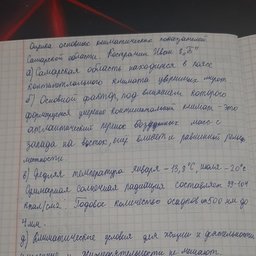 Оценка основных климатических показателей
Самарской области. Костромин Иван 8 "Б"
а) Самарская область находится в поясе
континентального климата умеренных широт
б) Основной фактор, под влиянием которого
формируется умеренно континентальный климат - это
атлантический принос воздушных масс с
запада на восток,
и равнинный рельеф
местности.
в) Средняя температура января -13,8°C, июля -20°C
Суммарная солнечная радиация составляет 99-104
Ккал/см2. Годовое количество осадков от 500 мм до
мм.
д) Климатические условия для жизни и деятельности
не мешают.